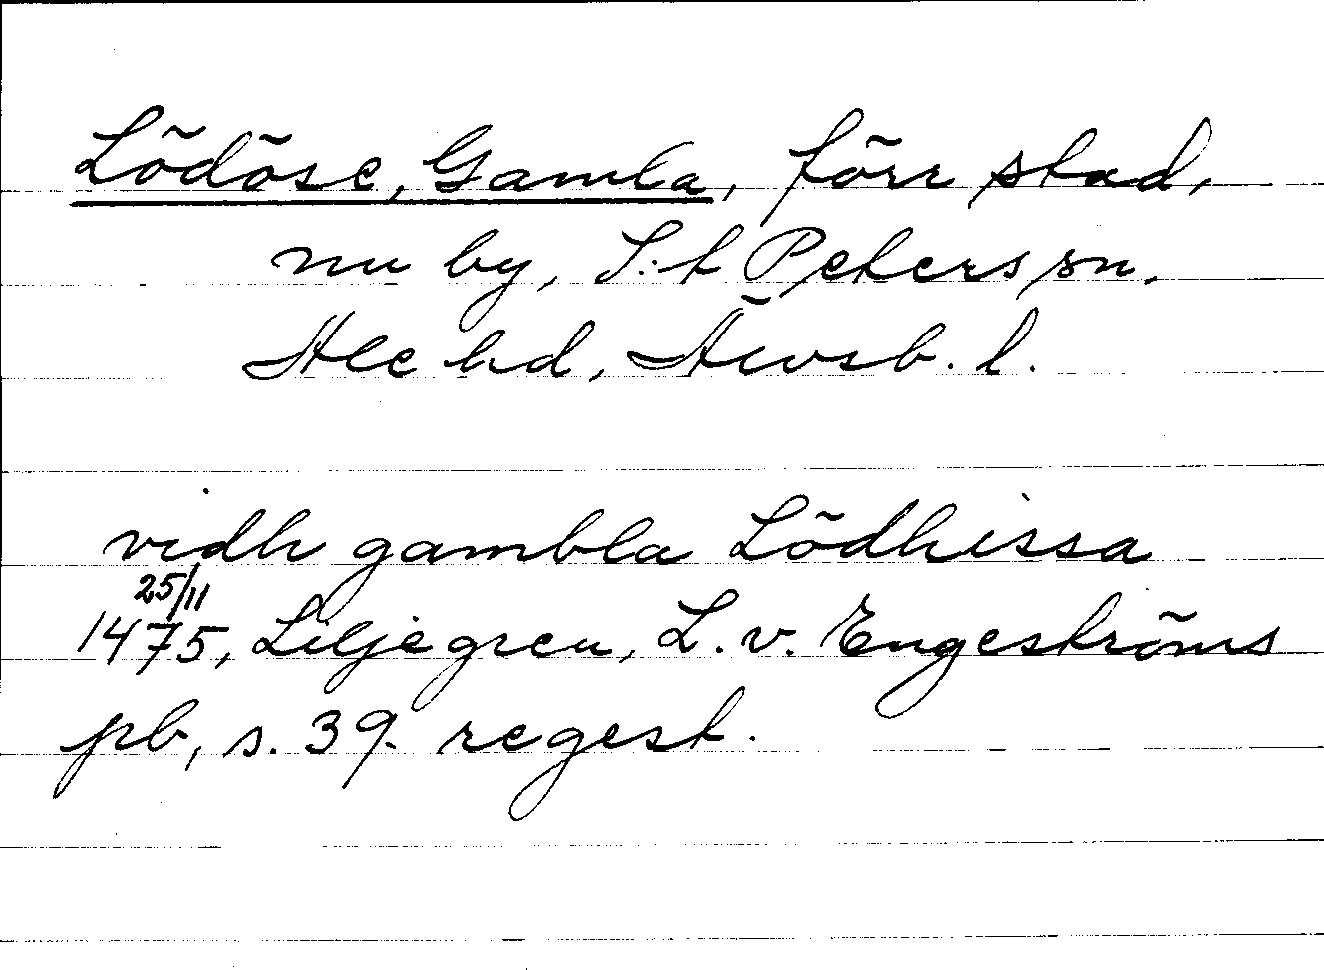 Lödöse, Gamla, förr stad,
nu by, S:t Peters sn,
Ale hd, Älvsb. l.
vidh gambla Lödhissa
25/11
1475, Liljegren, L. v. Engeströms
pb, s. 39. regest.